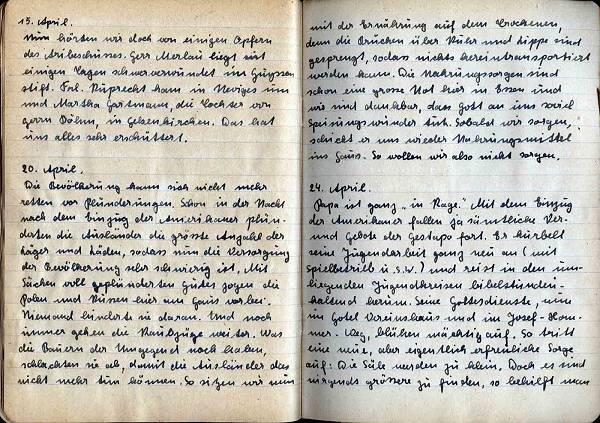 15. April.
Nun hörten wir doch von einigen Opfern
des Aribeschusses. Herr Merlau liegt seit
einigen Tagen schwerverwundet im Huyssen
stift. Frl. Ruprecht kam in Neviges um
und Martha Gartmann, die Tochter von
Herrn Döhn, in Gelsenkirchen. Das hat
uns alles sehr erschüttert.
20. April.
Die Bevölkerung kann sich nicht mehr
retten vor Plünderungen. Schon in der Nacht
nach dem Einzug der Amerikaner plün-
derten die Ausländer die grösste Anzahl der
Läger und Läden, sodass nun die Versorgung
der Bevölkerung sehr schwierig ist. Mit
Säcken voll geplünderten Gutes zogen die
Polen und Russen hier am Haus vorbei.
Niemand hinderte sie daran. Und noch
immer gehen die Raubzüge weiter. Was
die Bauern der Umgegend noch haben,
schlachten sie ab, damit die Ausländer das
nicht mehr tun können. So sitzen wir nun
mit der Ernährung auf dem Trockenen,
denn die Brücken über Ruhr und Lippe sind
gesprengt, sodass nichts hereintransportiert
werden kann. Die Nahrungssorgen sind
schon eine grosse Not hier in Essen und
wir sind dankbar, dass Gott an uns soviel
Speisungswunder tut. Sobald wir sorgen,
schickt er uns wieder Nahrungsmittel
ins Haus. So wollen wir also nicht sorgen.
24. April.
Papa ist ganz "in Rage". Mit dem Einzug
der Amerikaner fallen ja sämtliche Ver-
und Gebote der Gestapo fort. Er kurbelt
seine Jugendarbeit ganz neu an (mit
Spielbetrieb u.s.w.) und reist in den um-
liegenden Jugendkreisen bibelstunden-
haltend herum. Seine Gottesdienste, nun
im Hotel Vereinshaus und im Josef-Ham-
mer-Weg, blühen mächtig auf. So tritt
eine neue, aber eigentlich erfreuliche Sorge
auf: Die Säle werden zu klein. Doch es sind
nirgends grössere zu finden, so behilft man